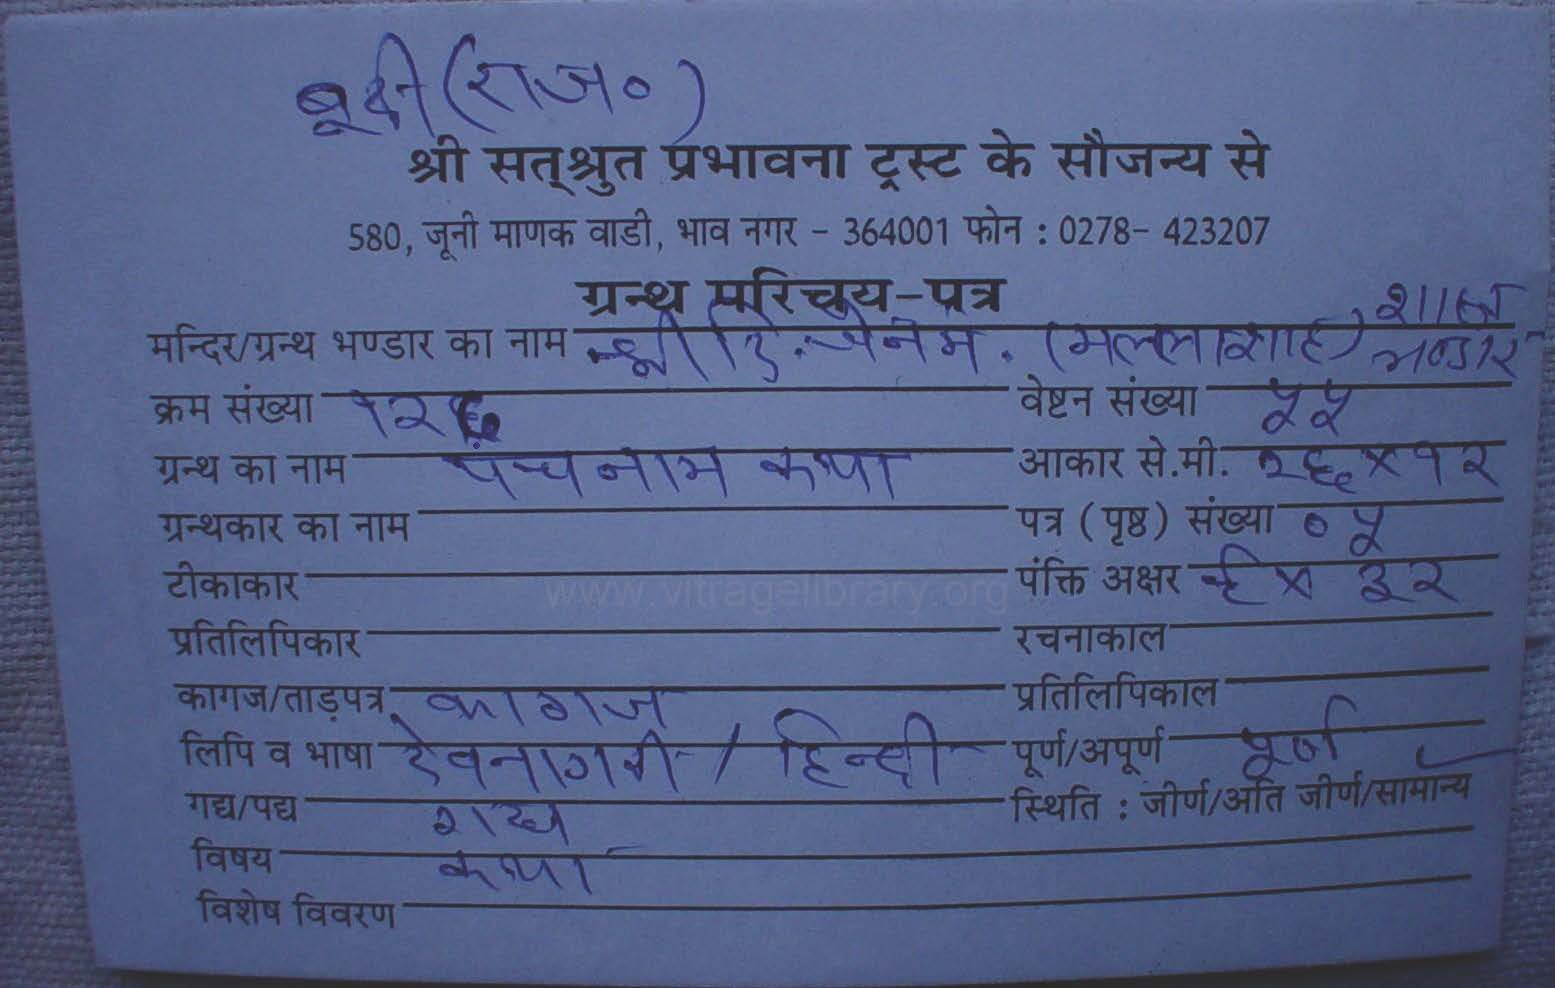 बून्दी (राज०)
श्री सत्श्रुत प्रभावना ट्रस्ट के सौजन्य से
580, जूनी माणक वाडी, भाव नगर - 364001 फोन : 0278- 423207
ग्रन्थ परिचय-पत्र
मन्दिर/ग्रन्थ भण्डार का नाम श्री दि. जैन म. (मल्लाशाह) शास्त्र भण्डार
क्रम संख्या १२६ वेष्टन संख्या ५५
ग्रन्थ का नाम पंचनाम कथा आकार से.मी. २६ × १२
ग्रन्थकार का नाम पत्र (पृष्ठ) संख्या ०५
टीकाकार पंक्ति अक्षर ९ × ३२
www.vitragelibrary.org
प्रतिलिपिकार रचनाकाल
कागज/ताड़पत्र कागज प्रतिलिपिकाल
लिपि व भाषा देवनागरी / हिन्दी पूर्ण/अपूर्ण पूर्ण
गद्य/पद्य गद्य स्थिति : जीर्ण/अति जीर्ण/सामान्य
विषय कथा
विशेष विवरण